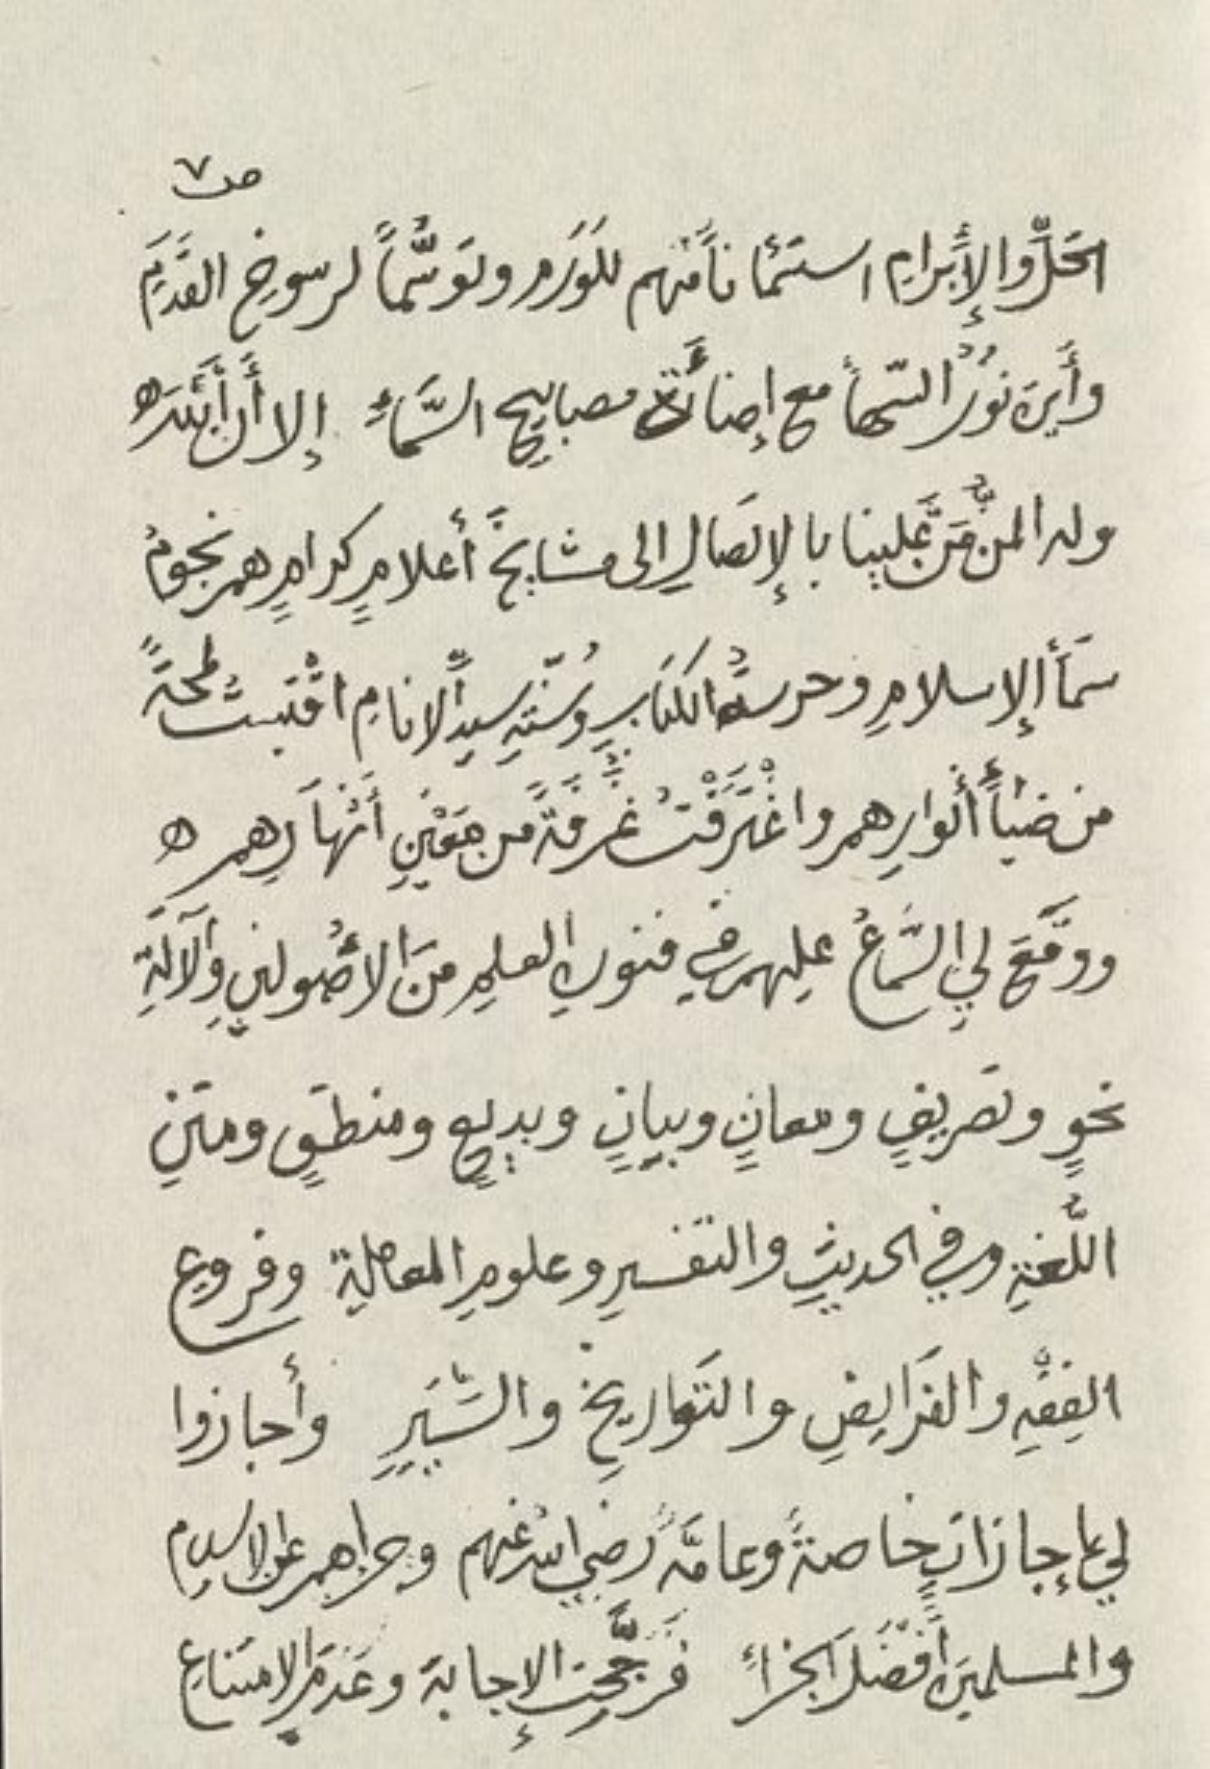 ص ٧
الحَلِّ والإِبرامِ استسمانًا منهم للوَرَم وتوسُّماً لرسوخِ القدَمِ
وأَين نورُ السّهأ مع إضاءَة مصابيحِ السَّمَاءِ إلا أَن الله
وله المنُّ مَنَّ علينا بالإتصالِ إلى مشايخَ أعلامٍ كرامٍ هم نجومُ
سمَأ الإسلامِ وحرسةُ الكتابِ وسُنّةِ سيدِ الانامِ اقْتبستُ لمحةً
من ضيأِ أَنوارِهم واغْتَرَفْتُ غُرفةً من مَعِيْنِ أَنْهارِهم ه
ووقَعَ لي السَّماعُ عليهم في فنونِ العلمِ منَ الأصُولينِ والآلَةِ
نحوٍ وتصريفٍ ومعانٍ وبيانٍ وبديعٍ ومنطقٍ ومتنِ
اللُّغةِ وفي الحديثِ والتفسيرِ وعلومِ المعاملةِ وفروعِ
الفِقْهِ والفَرَايضِ والتَّواريخِ والسِّيَرِ وأجازوا
لي إجازاتٍ خاصةً وعامَّةً رضي الله عنهم وجزاهم عن الاسلامِ
والمسلمينَ أفْضَلَ الجزأِ فَرَجَّحتُ الإجابةَ وعَدَمَ الامتناعِ